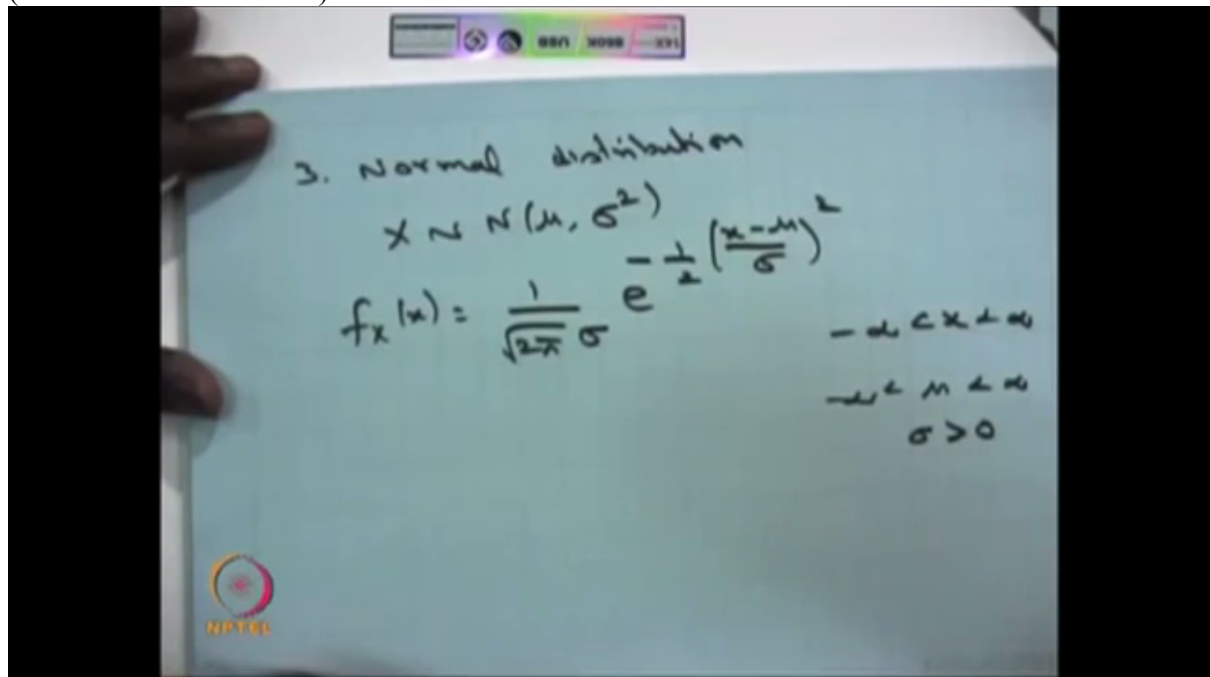 3. Normal distribution
X ~ N(μ, σ²)
f_X(x) = 1/(√2π σ) e^{-1/2 ((x-μ)/σ)²}
-∞ < x < ∞
-∞ < μ < ∞
σ > 0
NPTEL